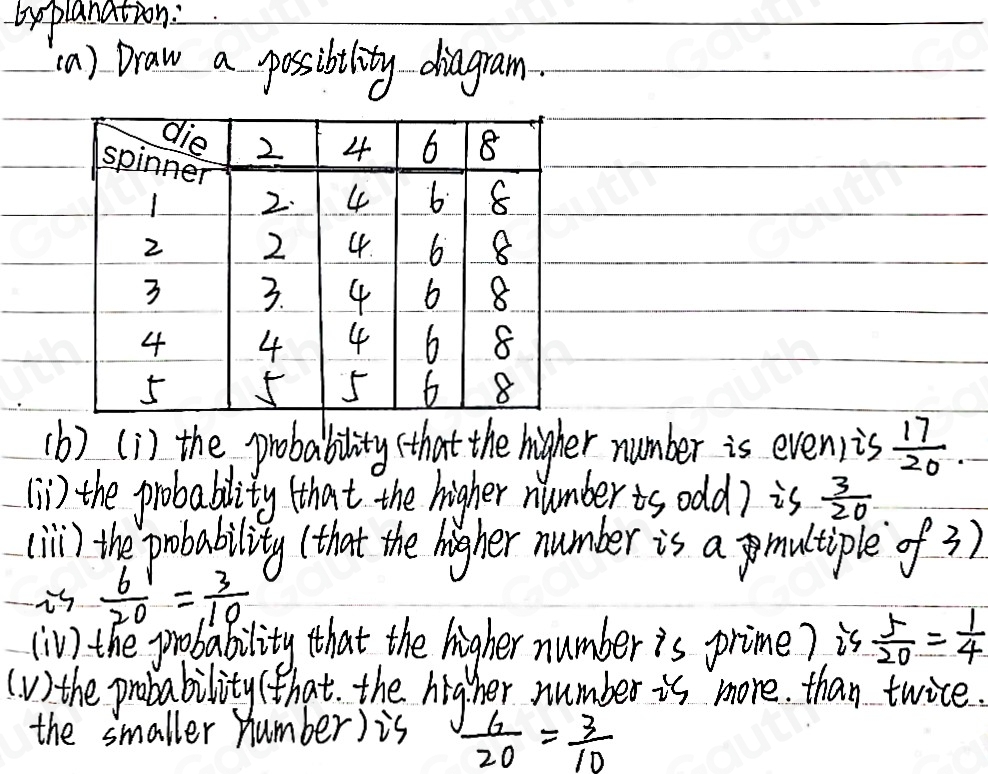 Explanation:
(a) Draw a possibility diagram.
die 2 4 6 8
spinner
1 2 4 6 8
2 2 4 6 8
3 3 4 6 8
4 4 4 6 8
5 5 5 6 8
(b) (i) the probability (that the higher number is even) is 17/20.
(ii) the probability (that the higher number is odd) is 3/20
(iii) the probability (that the higher number is a multiple of 3)
is 6/20 = 3/10
(iv) the probability (that the higher number is prime) is 5/20 = 1/4
(v) the probability (that. the higher number is more. than twice.
the smaller number) is 6/20 = 3/10